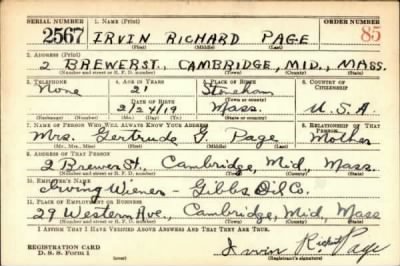 SERIAL NUMBER 1. NAME (Print) ORDER NUMBER
2567 IRVIN RICHARD PAGE 85
(First) (Middle) (Last)
2. ADDRESS (Print)
2 BREWER ST., CAMBRIDGE, MID., MASS.
(Number and street or R. F. D. number) (Town) (County) (State)
3. TELEPHONE 4. AGE IN YEARS 5. PLACE OF BIRTH 6. COUNTRY OF CITIZENSHIP
None 21 Stoneham
DATE OF BIRTH (Town or county)
2/24/19 Mass. U.S.A.
(Exchange) (Number) (Mo.) (Day) (Yr.) (State or country)
7. NAME OF PERSON WHO WILL ALWAYS KNOW YOUR ADDRESS 8. RELATIONSHIP OF THAT PERSON
Mrs. Gertrude G. Page Mother
(Mr., Mrs., Miss) (First) (Middle) (Last)
9. ADDRESS OF THAT PERSON
2 Brewer St., Cambridge, Mid., Mass.
(Number and street or R. F. D. number) (Town) (County) (State)
10. EMPLOYER'S NAME
Irving Wiener - Gibbs Oil Co.
11. PLACE OF EMPLOYMENT OR BUSINESS
29 Western Ave., Cambridge, Mid, Mass
(Number and street or R. F. D. number) (Town) (County) (State)
I AFFIRM THAT I HAVE VERIFIED ABOVE ANSWERS AND THAT THEY ARE TRUE.
REGISTRATION CARD Irvin Richard Page
D. S. S. Form 1 (over) (Registrant's signature)